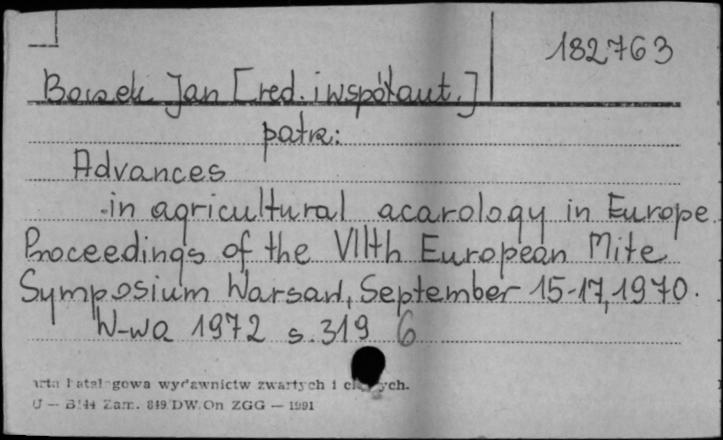 182763
Boczek Jan [red. i współaut.]
patrz:
Advances
in agricultural acarology in Europe.
Proceedings of the VIIth European Mite
Symposium Warsaw, September 15-17, 1970.
W-wa 1972 s. 319 6
arta katalogowa wydawnictw zwartych i ciągłych.
U — B/44 Zam. 849/DW/On ZGG — 1991